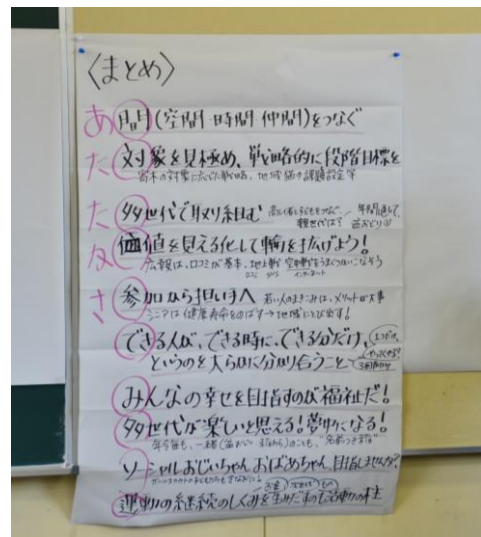 〈まとめ〉
あ 間(空間 時間 仲間)をつなぐ
た 対象を見極め、戦略的に段階目標を
寄木の対象に応じた戦略、地域猫の課題設定等
た 多世代で取り組む
親世代は?
な 価値を見える化して輪を拡げよう!
広報は、口コミが基本、地上戦 空中戦をうまくつかいこなそう
口コミ インターネット
さ 参加から担い手へ 若い人のまきこみは、メリットが大事
シニアは健康寿命をのばす→地域にとび出す!
できる人が、できる時に、できる分だけ、
というのを大らかに分かり合うこと
みんなの幸せを目指すのが福祉だ!
多世代が楽しいと思える!夢中になる!
ソーシャルおじいちゃん おばあちゃん、目指しませんか?
運動の継続のしくみを生みだすのも活動の柱